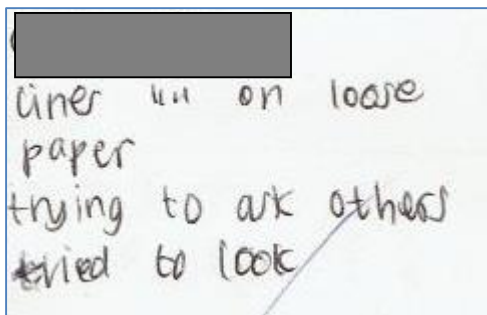 on loose
paper
trying to ask others
tried to look